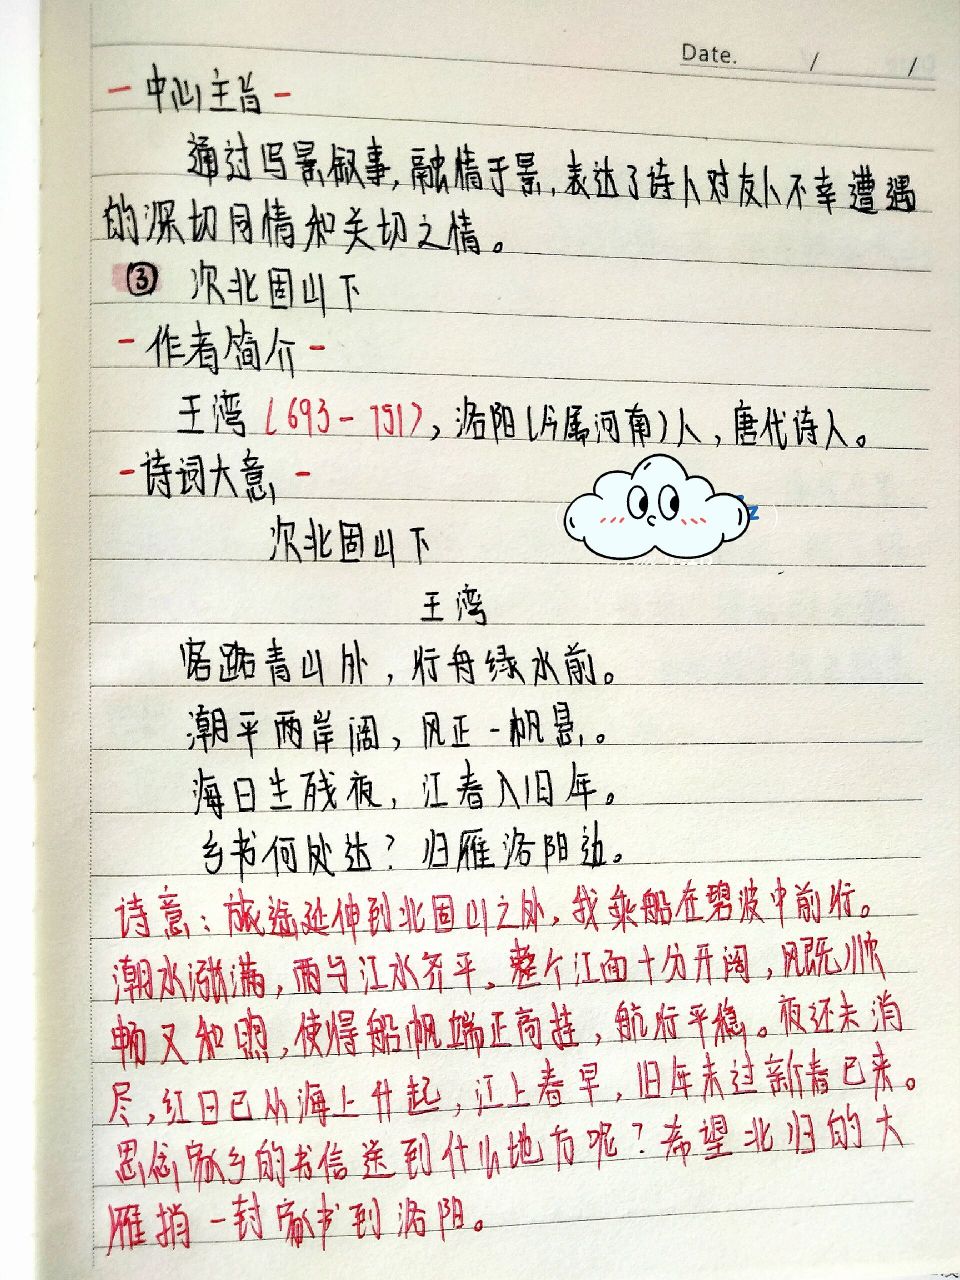 Date. / /
- 中心主旨 -
通过写景叙事,融情于景,表达了诗人对友人不幸遭遇
的深切同情和关切之情。
③ 次北固山下
- 作者简介 -
王湾(693-751),洛阳(今属河南)人,唐代诗人。
- 诗词大意 -
z
次北固山下
王湾
客路青山外,行舟绿水前。
潮平两岸阔,风正一帆悬。
海日生残夜,江春入旧年。
乡书何处达?归雁洛阳边。
诗意:旅途延伸到北固山之外,我乘船在碧波中前行。
潮水涨满,两与江水齐平、整个江面十分开阔,风既顺
畅又和煦,使得船帆端正高挂,航行平稳。夜还未消
尽,红日已从海上升起,江上春早,旧年未过新春已来。
思念家乡的书信送到什么地方呢?希望北归的大
雁捎一封家书到洛阳。